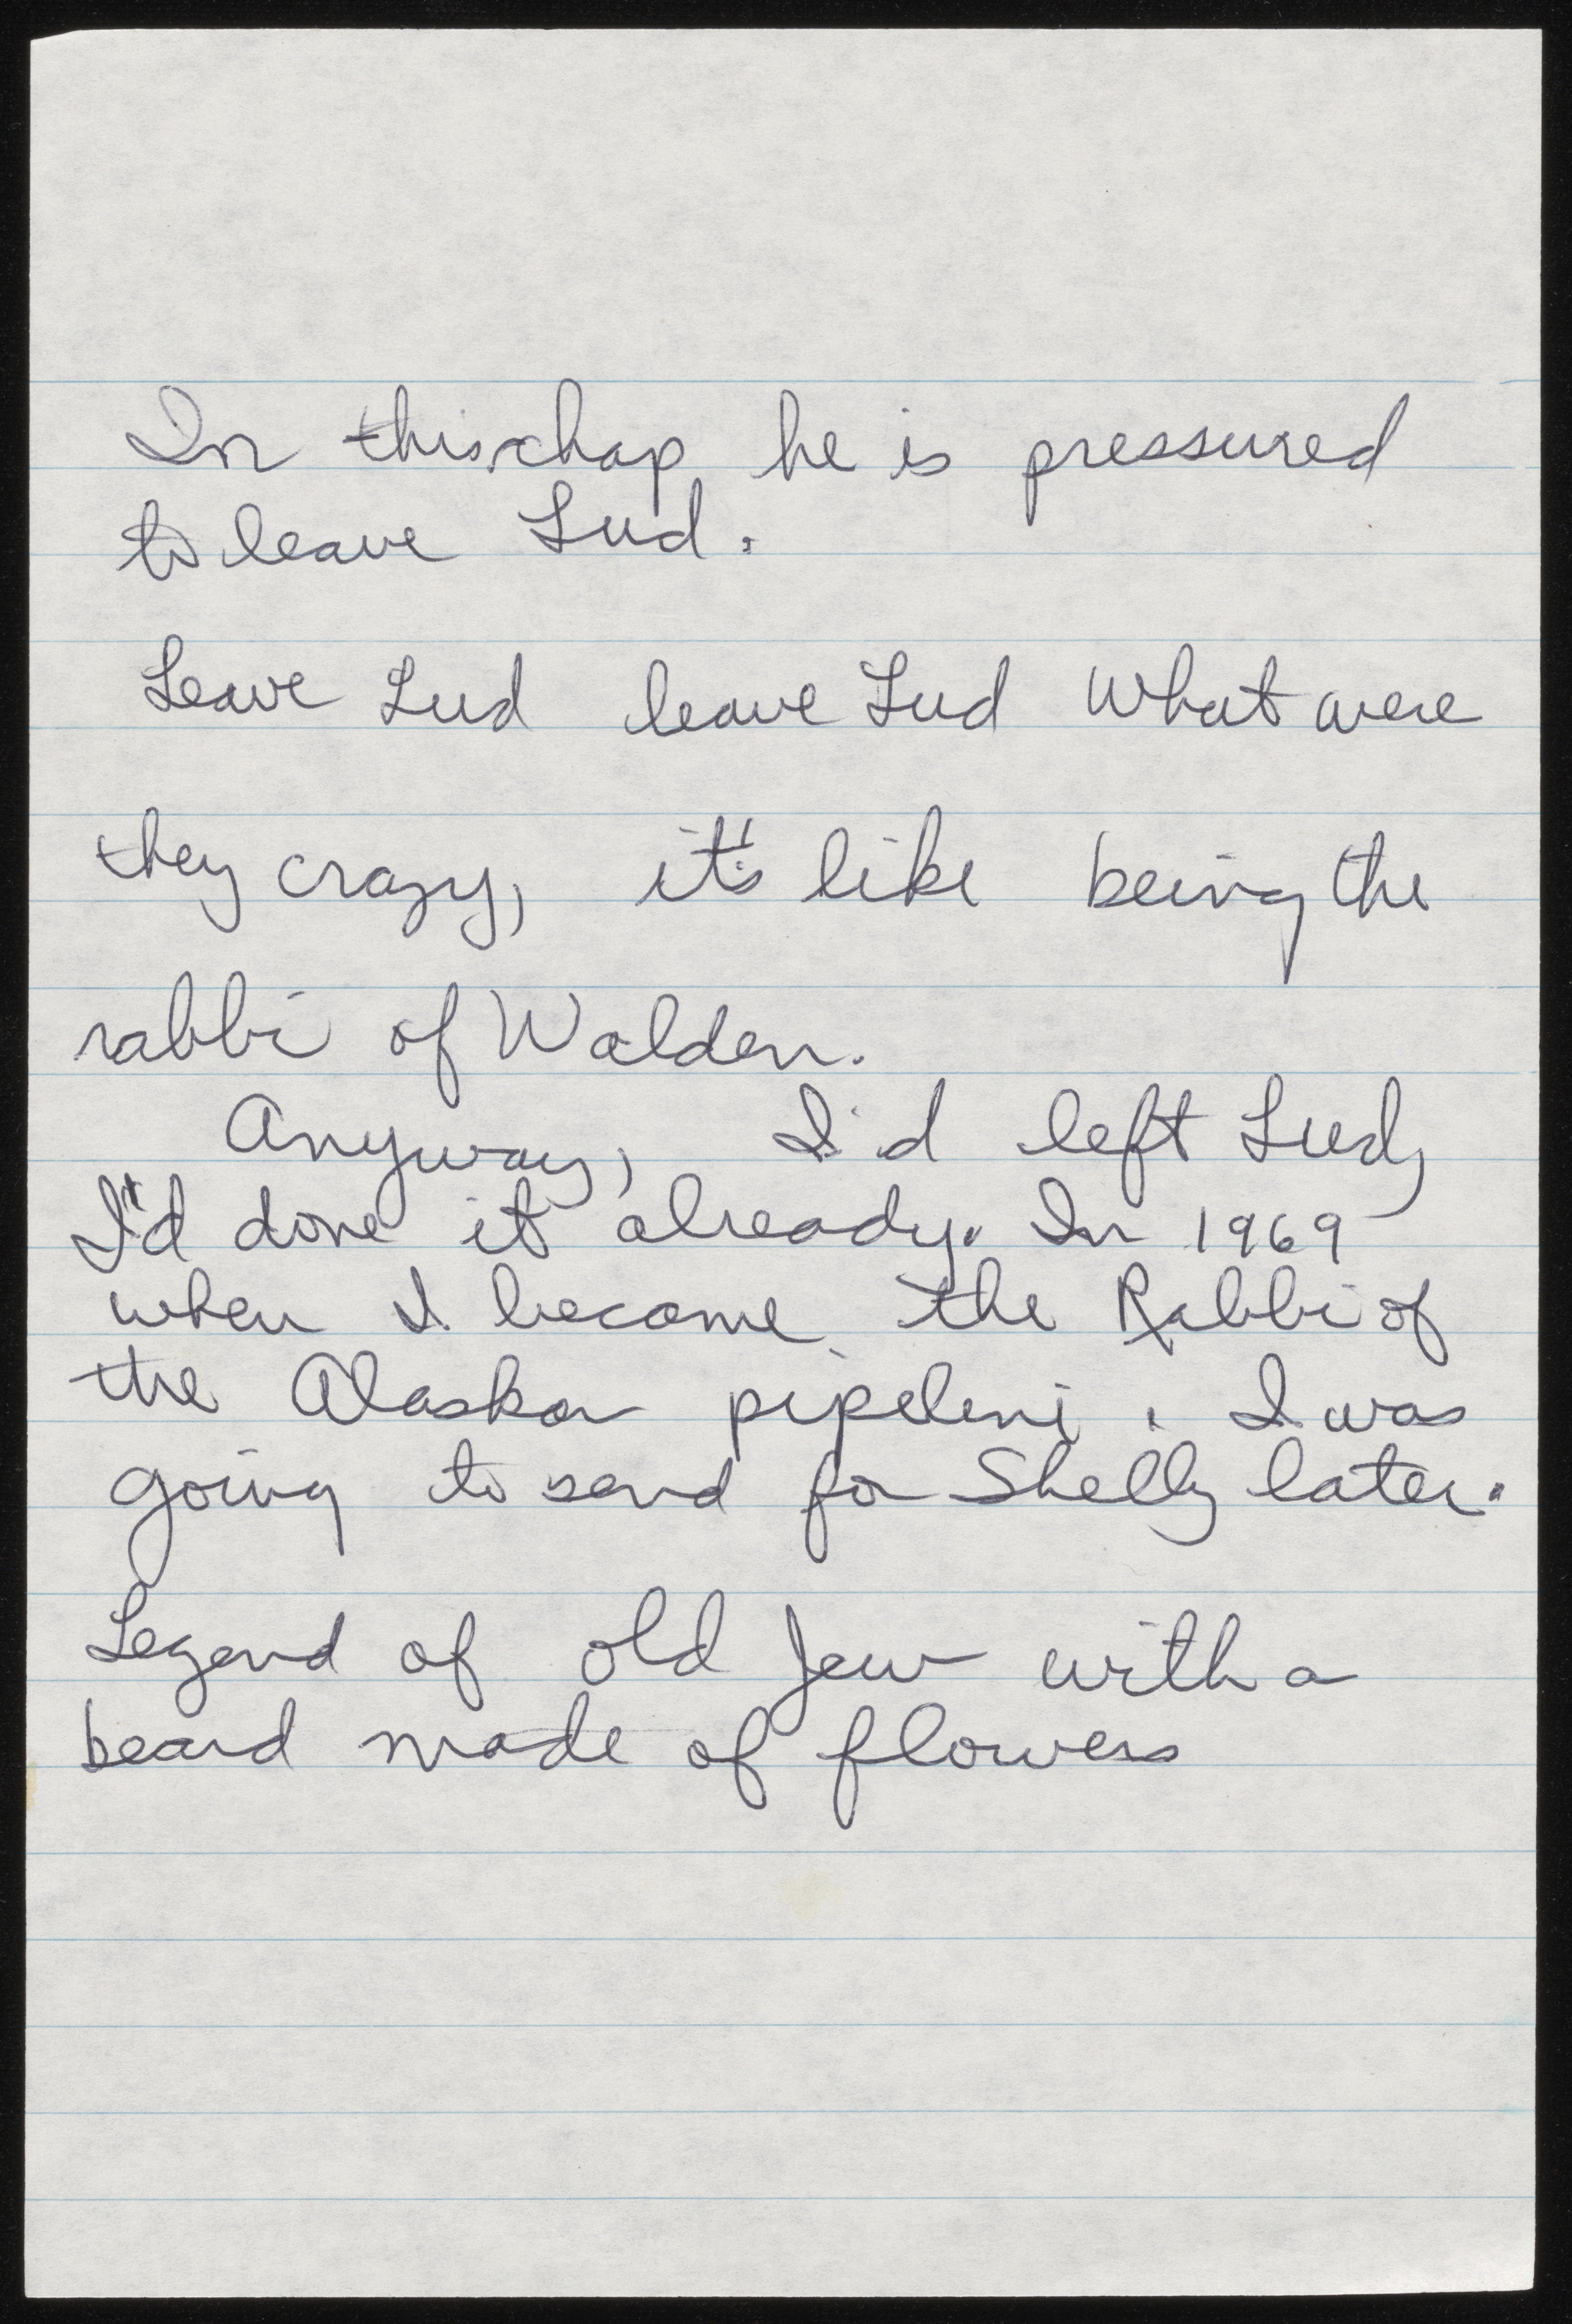 In this chap he is pressured
to leave Lud.
Leave Lud leave Lud What were
they crazy, it's like being the
rabbi of Walden.
Anyway, I'd left Lud,
I'd done it already. In 1969
when I become the Rabbi of
the Alaska pipeline. I was
going to send for Shelly later.
Legend of old Jew with a
beard made of flowers